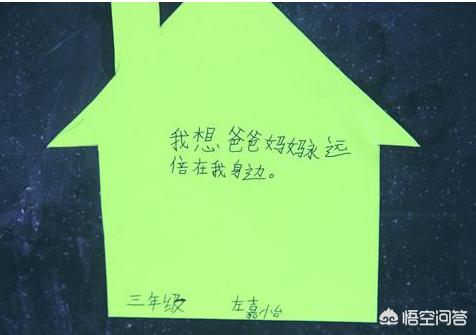 我想爸爸妈妈永远
倍在我身边。
三年级 左嘉怡
悟空问答